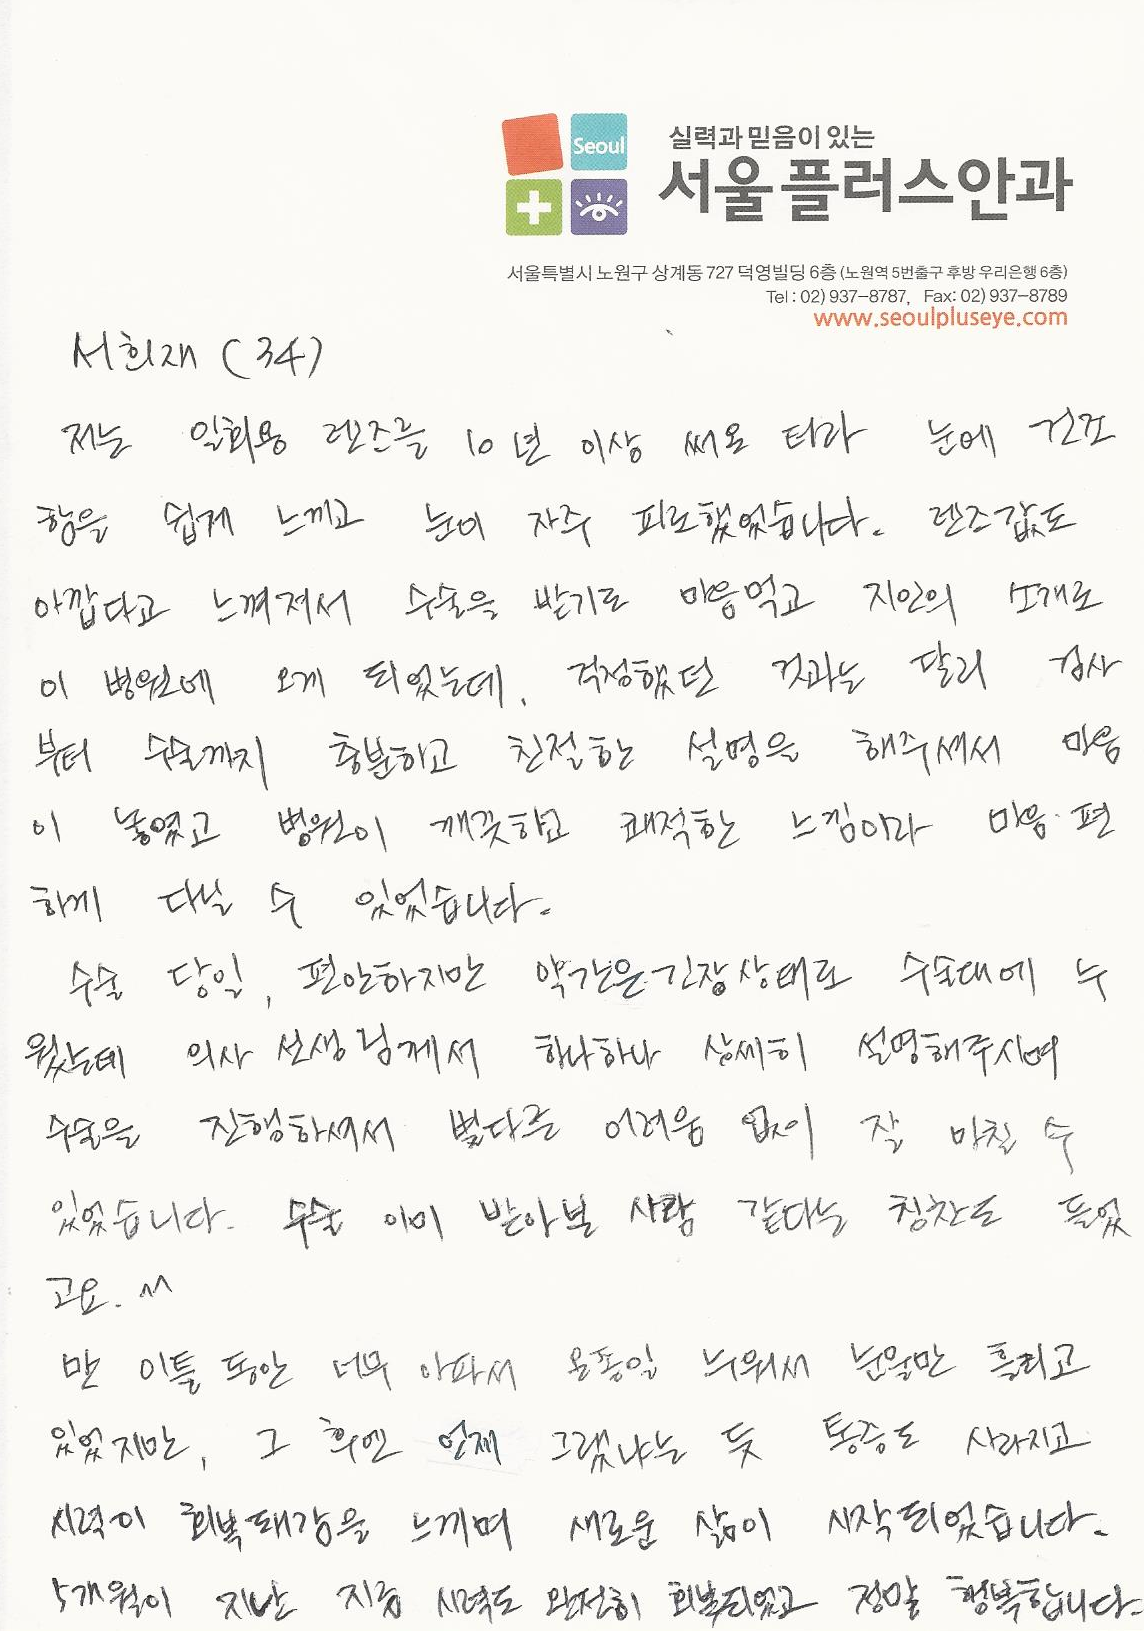 Seoul
실력과 믿음이 있는
서울플러스안과
서울특별시 노원구 상계동 727 덕영빌딩 6층 (노원역 5번출구 후방 우리은행 6층)
Tel : 02) 937-8787,  Fax: 02) 937-8789
www.seoulpluseye.com
서희재 (34)
저는 일회용 렌즈를 10년 이상 써오 터라 눈에 건조
함을 쉽게 느끼고 눈이 자주 피로했었습니다. 렌즈값도
아깝다고 느껴져서 수술을 받기로 마음먹고 지인의 소개로
이 병원에 오게 되었는데, 걱정했던 것과는 달리 검사
부터 수술까지 충분하고 친절한 설명을 해주셔서 마음
이 놓였고 병원이 깨끗하고 쾌적한 느낌이라 마음 편
하게 다닐 수 있었습니다.
수술 당일, 편안하지만 약간은 긴장상태로 수술대에 누
웠는데 의사 선생님께서 하나하나 상세히 설명해주시며
수술을 진행하셔서 별다른 어려움 없이 잘 마칠 수
있었습니다. 수술 이미 받아본 사람 같다는 칭찬도 들었
고요. ^^
만 이틀 동안 너무 아파서 온종일 누워서 눈물만 흘리고
있었지만, 그 후엔 언제 그랬냐는 듯 통증도 사라지고
시력이 회복돼감을 느끼며 새로운 삶이 시작되었습니다.
5개월이 지난 지금 시력도 완전히 회복되었고 정말 행복합니다.